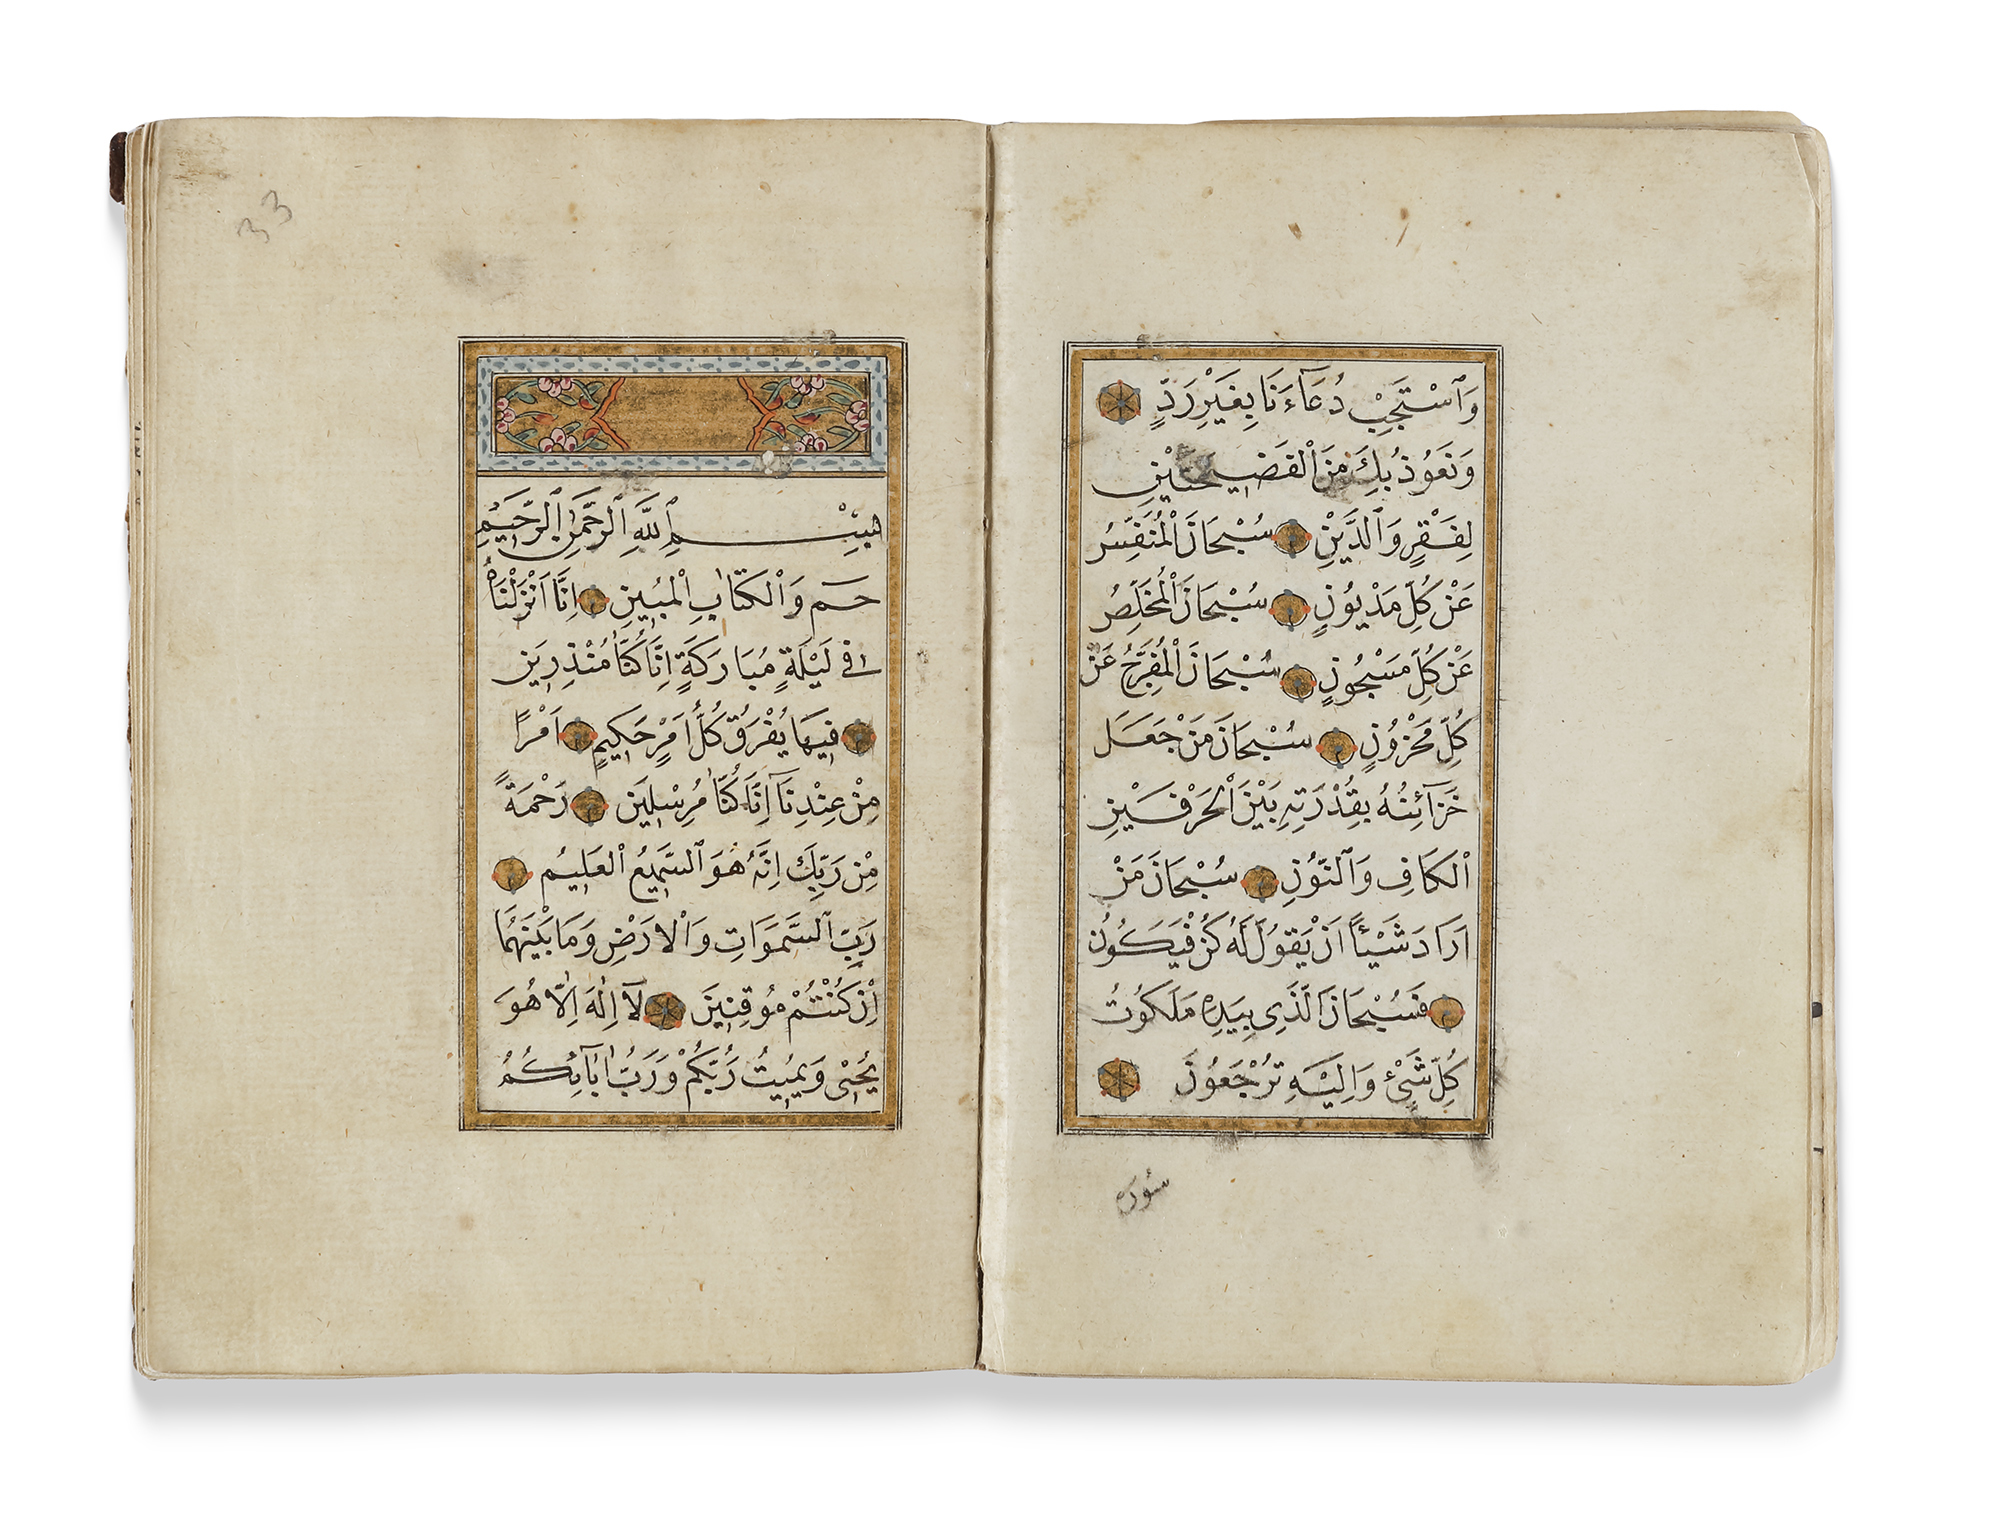 وَاسْتَجِبْ دُعَاءَنَا بِغَيْرِ رَدٍّ
وَنَعُوذُ بِكَ مِنَ الْفَضِيحَتَيْنِ
لِفَقْرٍ وَالدَّيْنِ سُبْحَانَ الْمُنَفِّسُ
عَنْ كُلِّ مَدْيُونٍ سُبْحَانَ الْمُخَلِّصُ
عَنْ كُلِّ مَسْجُونٍ سُبْحَانَ الْمُفَرِّجُ عَنْ
كُلِّ مَحْزُونٍ سُبْحَانَ مَنْ جَعَلَ
خَزَآئِنُهُ بِقُدْرَتِهِ بَيْنَ الْحَرْفَيْنِ
الْكَافِ وَالنُّونِ سُبْحَانَ مَنْ
اَرَادَ شَيْئاً اَنْ يَقُولَ لَهُ كُنْ فَيَكُونُ
فَسُبْحَانَ الَّذِي بِيَدِهِ مَلَكُوتُ
كُلِّ شَيْءٍ وَاِلَيْهِ تُرْجَعُونَ
سوره
33
بِسْمِ اللهِ الرَّحْمٰنِ الرَّحِيمِ
حم وَالْكِتَابِ الْمُبِينِ اِنَّا اَنْزَلْنَاهُ
فِي لَيْلَةٍ مُبَارَكَةٍ اِنَّا كُنَّا مُنْذِرِينَ
فِيهَا يُفْرَقُ كُلُّ اَمْرٍ حَكِيمٍ اَمْرًا
مِنْ عِنْدِنَا اِنَّا كُنَّا مُرْسِلِينَ رَحْمَةً
مِنْ رَبِّكَ اِنَّهُ هُوَ السَّمِيعُ الْعَلِيمُ
رَبِّ السَّمٰوَاتِ وَالْاَرْضِ وَمَا بَيْنَهُمَا
اِنْ كُنْتُمْ مُوقِنِينَ لَا اِلٰهَ اِلَّا هُوَ
يُحْيِى وَيُمِيتُ رَبُّكُمْ وَرَبُّ اٰبَآئِكُمُ